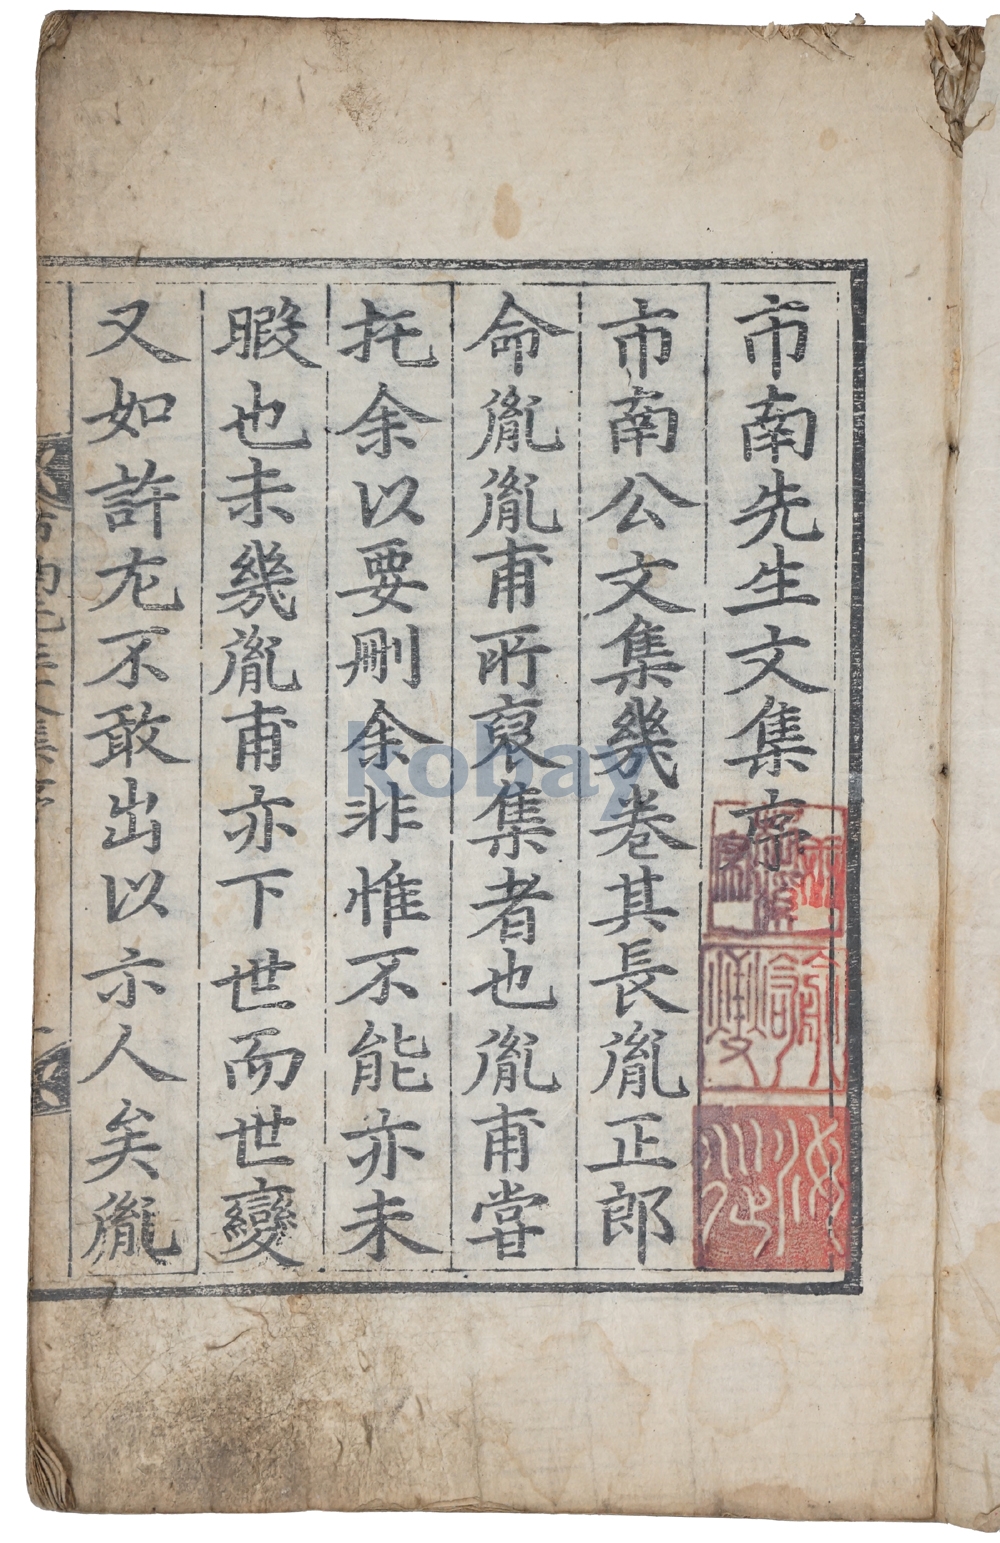 市南先生文集序
市南公文集幾卷其長胤正郎
命胤胤甫所裒集者也胤甫嘗
托余以要刪余非惟不能亦未
暇也未幾胤甫亦下世而世變
又如許尤不敢出以示人矣胤
kobay